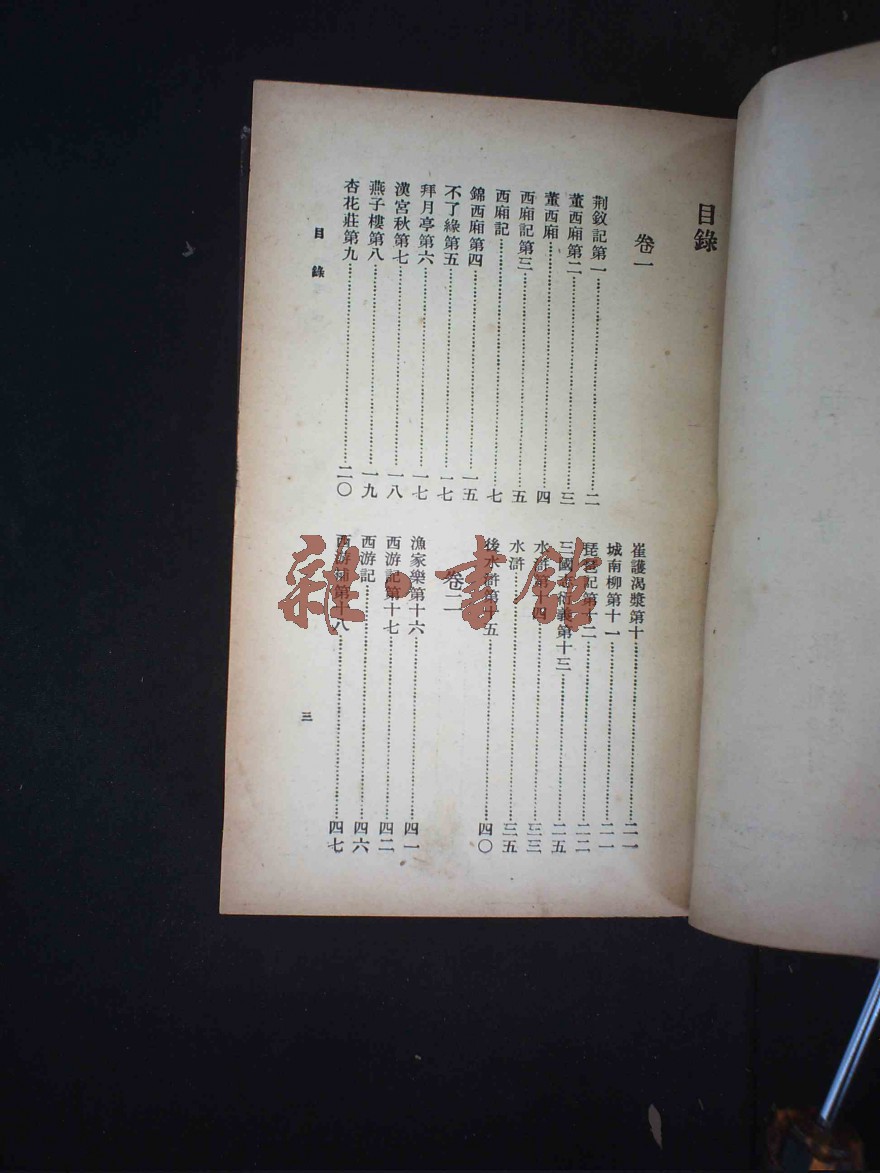 目錄
卷一
荆釵記第一……二
董西廂第二……三
董西廂……四
西廂記第三……五
西廂記……七
錦西廂第四……一五
不了緣第五……一七
拜月亭第六……一七
漢宮秋第七……一八
燕子樓第八……一九
杏花莊第九……二〇
崔護渴漿第十……二一
城南柳第十一……二一
琵琶記第十二……二二
三國志衍義第十三……二五
水滸第十四……三三
水滸……三五
後水滸第十五……四〇
卷二
漁家樂第十六……四一
西游記第十七……四二
西游記……四六
西游補第十八……四七
目錄
三
雜·書館